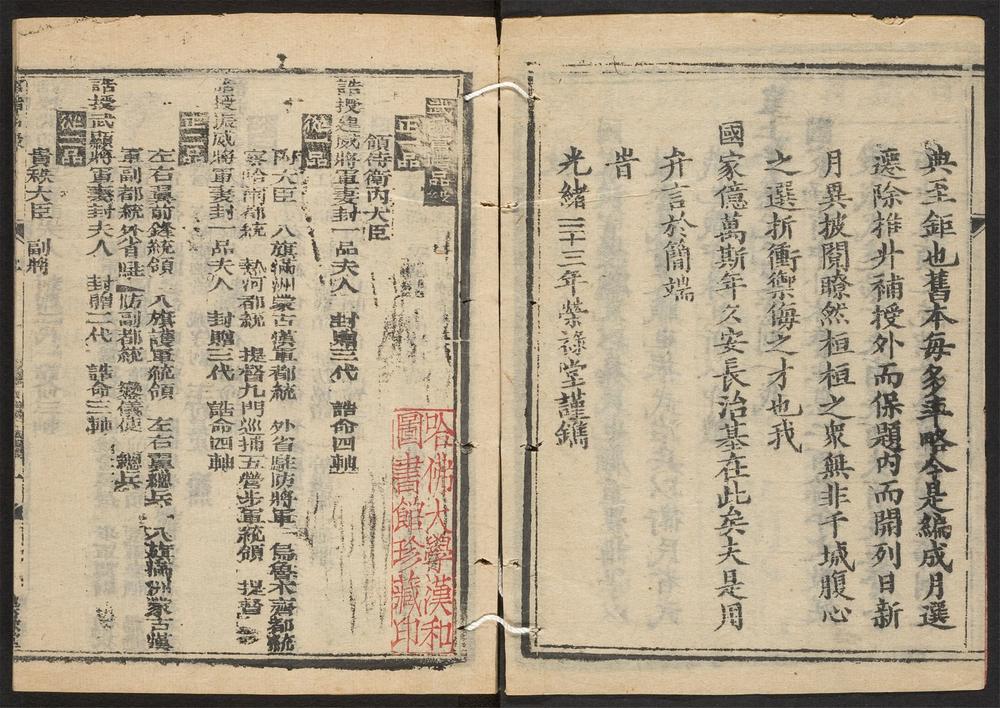 典至鉅也舊本每多年略今是編成月選
遷除推升補授外而保題內而開列日新
月異披閱瞭然桓桓之衆無非干城腹心
之選折衝禦侮之才也我
國家億萬斯年久安長治基在此矣夫是用
弁言於簡端
旹
光緒二十三年榮祿堂謹鐫
正一品
領侍衛內大臣
誥授建威將軍妻封一品夫人 封贈三代 誥命四軸
從一品
內大臣 八旗滿洲蒙古漢軍都統 外省駐防將軍 烏魯木齊都統
察哈爾都統 熱河都統 提督九門巡捕五營步軍統領 提督
誥授振威將軍妻封一品夫人 封贈三代 誥命四軸
正二品
左右翼前鋒統領 八旗護軍統領 左右翼總兵 八旗滿洲蒙古漢
軍副都統 外省駐防副都統 鑾儀使 總兵
誥授武顯將軍妻封夫人 封贈二代 誥命三軸
從二品
貴秩大臣 副將
哈佛大學漢和
圖書館珍藏印